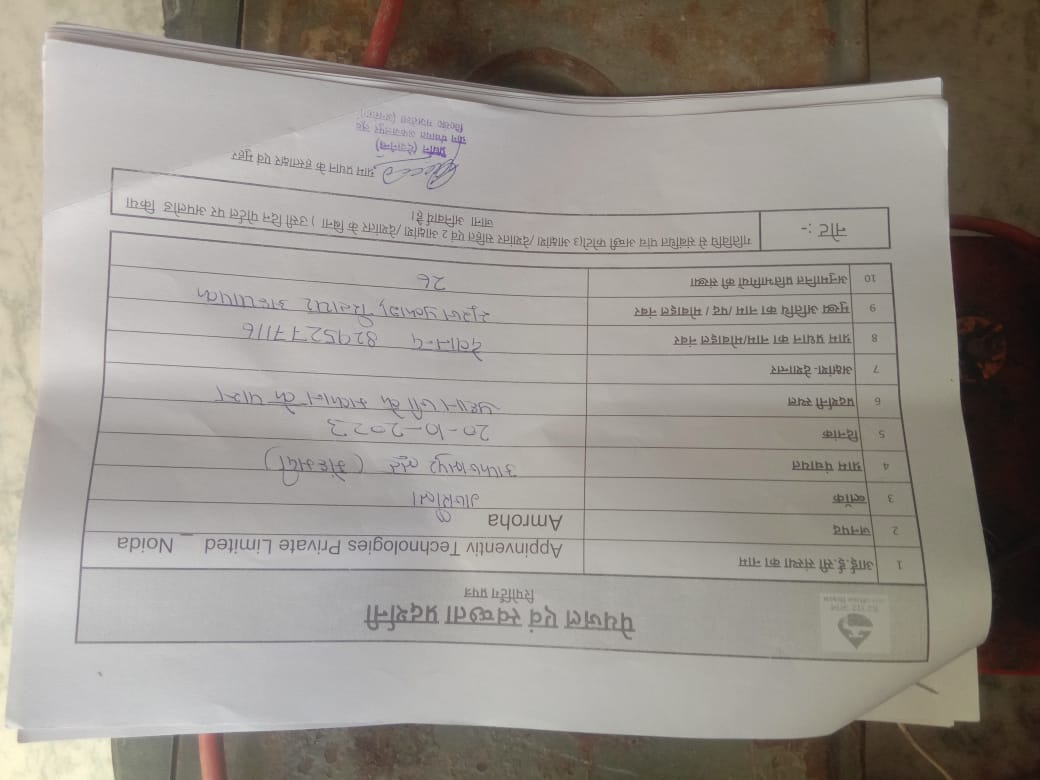 पेयजल एवं स्वच्छता प्रदर्शनी
रिपोर्टिंग प्रपत्र
1 आई.ई.सी संस्था का नाम Appinventiv Technologies Private Limited _ Noida
2 जनपद Amroha
3 ब्लॉक गजरौला
4 ग्राम पंचायत
5 दिनांक 20-10-2023
6 प्रदर्शनी स्थल प्रधान जी के मकान के पास
7 अक्षांश- देशान्तर
8 ग्राम प्रधान का नाम/मोबाइल नंबर 8295277116
9 मुख्य अतिथि का नाम / पद / मोबाइल नंबर
10 अनुमानित प्रतिभागियों की संख्या 26
नोट :- गतिविधि से संबंधित पांच अच्छी फोटो(3 आक्षांश /देशांतर सहित एवं 2 आक्षांश /देशांतर के बिना ) उसी दिन पोर्टल पर अपलोड किया
जाना अनिवार्य है।
ग्राम प्रधान के हस्ताक्षर एवं मुहर
प्रधान
ग्राम पंचायत